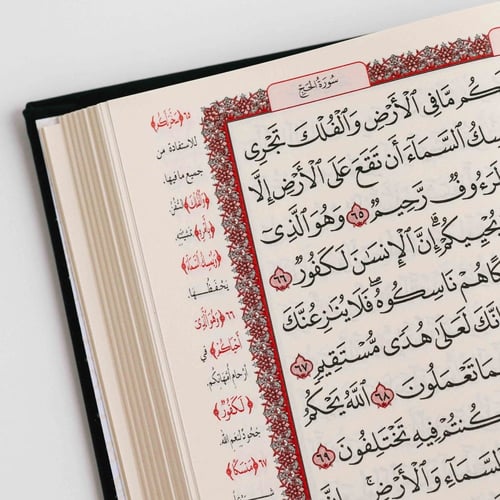 سُورَةُ الحَجّ
كُم مَّا فِي ٱلۡأَرۡضِ وَٱلۡفُلۡكَ تَجۡرِي
سِكُ ٱلسَّمَآءَ أَن تَقَعَ عَلَى ٱلۡأَرۡضِ إِلَّا
لَرَءُوفٞ رَّحِيمٞ ٦٥ وَهُوَ ٱلَّذِيٓ
يُحۡيِيكُمۡۗ إِنَّ ٱلۡإِنسَٰنَ لَكَفُورٞ ٦٦
نَاسِكُوهُۖ فَلَا يُنَٰزِعُنَّكَ
إِنَّكَ لَعَلَىٰ هُدٗى مُّسۡتَقِيمٖ ٦٧
بِمَا تَعۡمَلُونَ ٦٨ ٱللَّهُ يَحۡكُمُ
كُنتُمۡ فِيهِ تَخۡتَلِفُونَ ٦٩
ٱلسَّمَآءِ وَٱلۡأَرۡضِۚ إِنَّ
٦٥ ﴿سَخَّرَ لَكُم﴾
للاستفادة من
جميع ما فيها.
﴿وَٱلۡفُلۡكَ﴾ السُّفُنَ.
﴿بِأَمۡرِهِۦ﴾ بمشيئته.
﴿وَيُمۡسِكُ ٱلسَّمَآءَ﴾
يَحْفَظُها.
٦٦ ﴿وَهُوَ ٱلَّذِيٓ
أَحۡيَاكُمۡ﴾ في
أرحام أمهاتكم.
﴿لَكَفُورٞ﴾
جَحُودٌ لنِعَمِ الله.
٦٧ ﴿مَنسَكًا﴾